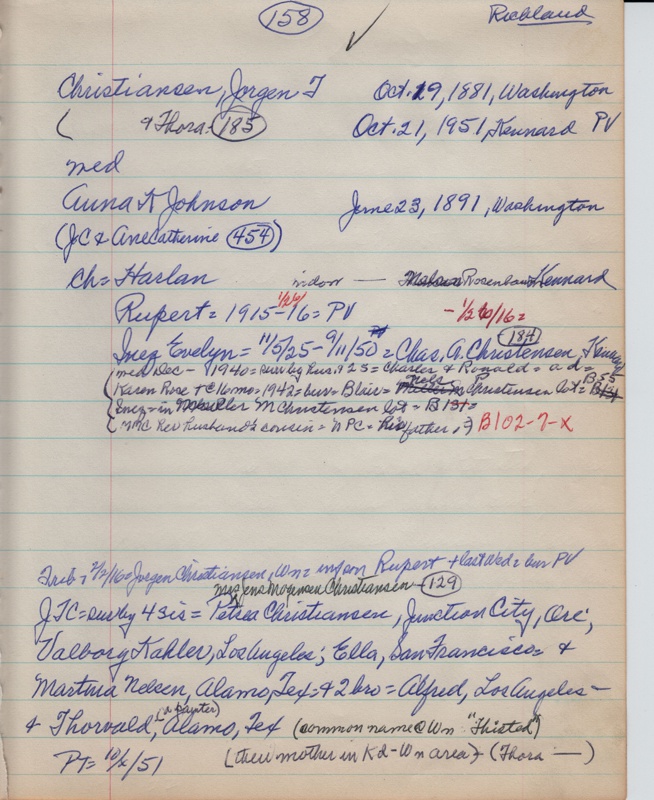 158 ✓ Richland
Christiansen, Jorgen T Oct. 19, 1881, Washington
( & Thora- 185 Oct. 21, 1951, Kennard PV
med
Anna K Johnson June 23, 1891, Washington
(JC & Ane Catherine 454)
Ch = Harlan indoor — Rosenbaum Kennard
Rupert = 1915-16 = PV 1/26/ - 1/26/16 =
Inez Evelyn = 11/5/25 - 9/11/50 = Chas. A. Christensen, Kennard 184
med Dec - 1940 = surv by hus. & 2 S = Charles & Ronald = ad =
Karen Rose + @ 16 mo = 1942 = bur = Blair = Christensen lot = B55
Inez = in M Christensen lot = B151 =
MMC Rev husband's cousin = NPC = His father, ?) B102-7-X
Trib = 2/2/16 = Jorgen Christiansen, Wn = inf son Rupert + last Wed = bur PV
mrs Jens Mogensen Christiansen - 129
JTC = surv by 4 sis = Petrea Christiansen, Junction City, Ore,
Valborg Kahler, Los Angeles; Ella, San Francisco = &
Martha Nelsen, Alamo, Tex = & 2 bro = Alfred, Los Angeles -
& Thorvald, (a painter) Alamo, Tex (common name @ Wn "Thisted")
PT = 10/x/51 (their mother in Kd - Wn area) - (Thora —)